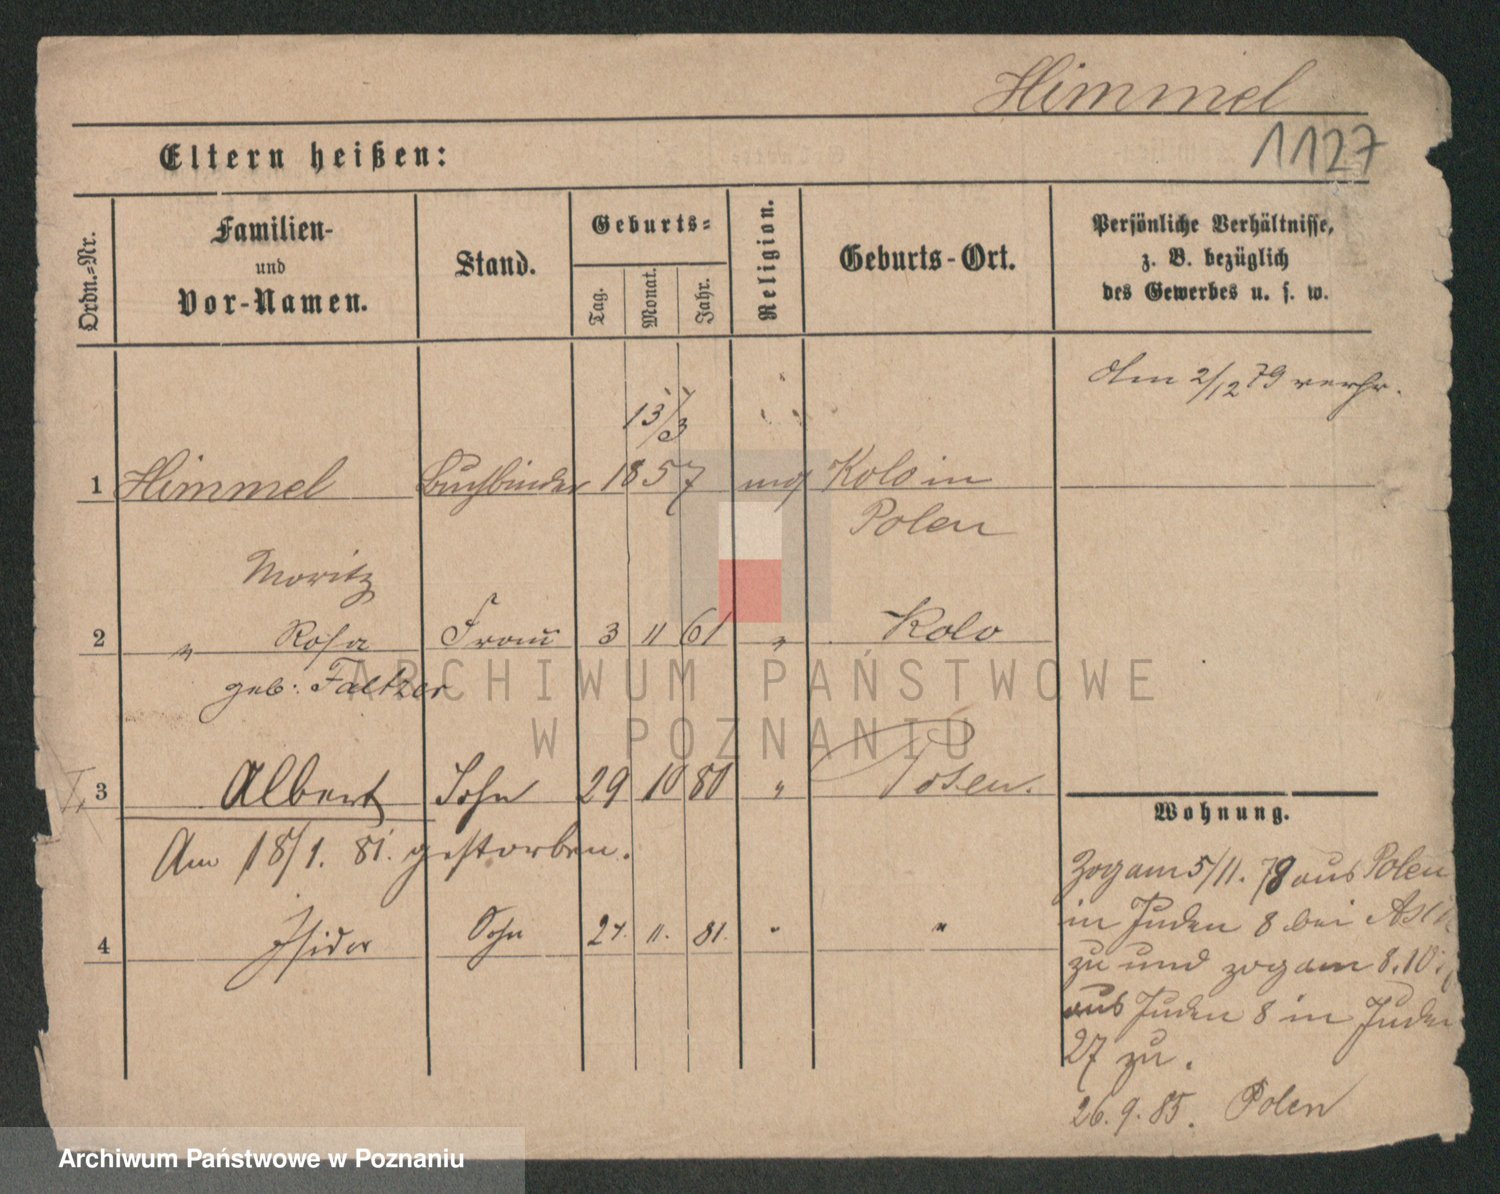 Himmel
1127
Eltern heißen:
Ordn.-Nr.
Familien-
und
Vor-Namen.
Stand.
Geburts-
Tag.
Monat.
Jahr.
Religion.
Geburts-Ort.
Persönliche Verhältnisse,
z. B. bezüglich
des Gewerbes u. s. w.
Am 2/12 79 verhr.
13/3
1 Himmel Buchbinder 1857 mos Kolo in
Polen
Moritz
2 " Rosa Frau 3 11 61 " Kolo
geb: Faltzer
3 Albert Sohn 29 10 80 " Posen.
Am 18/1. 81. gestorben.
4 Isidor Sohn 27. 11. 81. " "
Wohnung.
Zog am 5/11. 78 aus Polen
in Juden 8 bei
zu und zog am 8.10
aus Juden 8 in Juden
27 zu.
26. 9. 85. Polen
ARCHIWUM PAŃSTWOWE
W POZNANIU
Archiwum Państwowe w Poznaniu